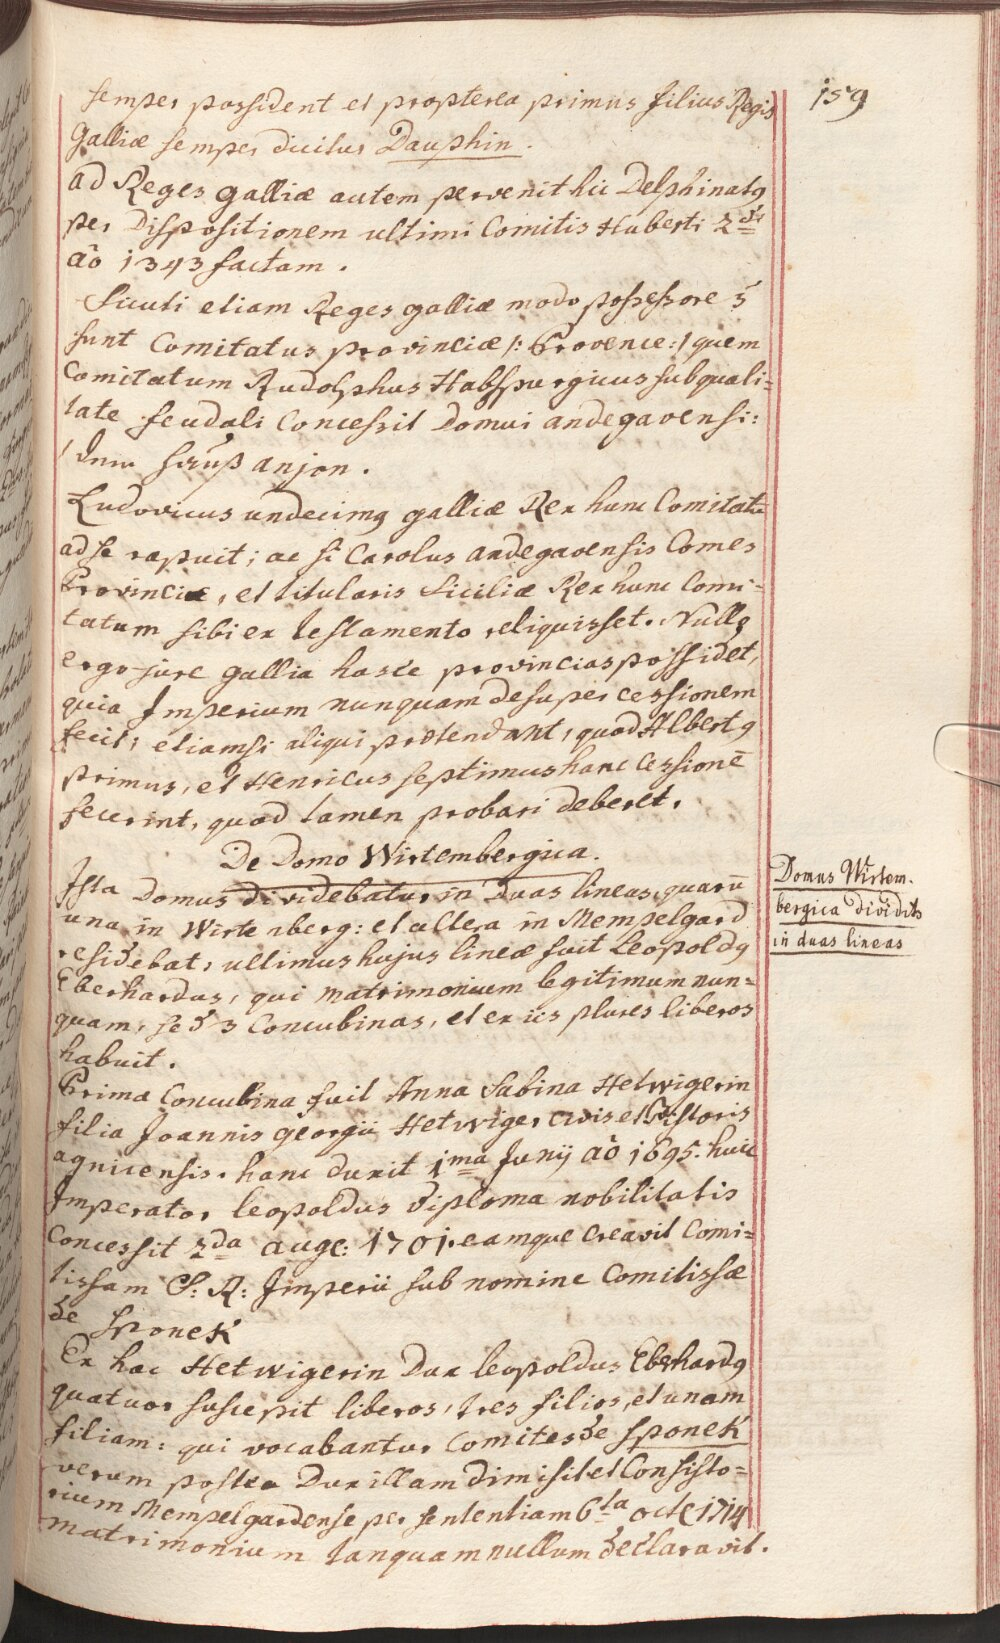 159
semper possident et propterea primus filius Regis
Galliæ semper dicitur Dauphin.
ad Reges galliæ autem pervenit hic Delphinatq
per dispositionem ultimi Comitis Huberti 2di
aõ 1343 factam.
Sicuti etiam Reges galliæ modo possessores
sunt Comitatus provinciæ /: Provence :/ quem
Comitatum Rudolphus Habspurgicus sub quali=
tate feudali Concessit Domui andegavensi:
anjou.
Ludovicus undecimq galliæ Rex hunc Comitatu
ad se rapuit; ac si Carolus andegavensis Comes
Provinciæ, et titularis Siciliæ Rex hunc Comi=
tatum sibi ex testamento reliquisset. Nullo
ergo jure gallia hasce provincias possidet,
quia Imperium nunquam desuper cessionem
fecit, etiamsi aliqui protendant, quod Albertq
primus, et Henricus septimus hanc Cessionē
fecerint, quod tamen probari deberet.
De Domo Wirtembergica.
Domus Wirtem-
bergica dividits
in duas lineas
Ista Domus dividebatur in duas lineas, quarū
una in Wirtenberg: et altera in Mempelgard
residebat, ultimus hujus lineæ fuit Leopoldq
Eberhardus, qui matrimonium legitimum nun=
quam, sed 3 Concubinas, et ex iis plures liberos
habuit.
Prima Concubina fuit Anna Sabina Hetwigerin
filia Joannis georgii Hetwiger civis et Pistoris
agnicensis. hanc duxit 1ma Junij aõ 1695. huic
Imperator leopoldus diploma nobilitatis
Concessit 2da augc: 1701. eamque creavit Comi=
tissam S: R: Imperii sub nomine Comitissæ
de Sponek
Ex hac Hetwigerin Dux leopoldus Eberhardq
quatuor suscepit liberos, tres filios, et unam
filiam: qui vocabantur Comites de Sponek
verum postea Dux illam dimisit et Consisto=
rium Mempelgardense per sententiam 6ta oct 1714
matrimonium tanquam nullum declaravit.